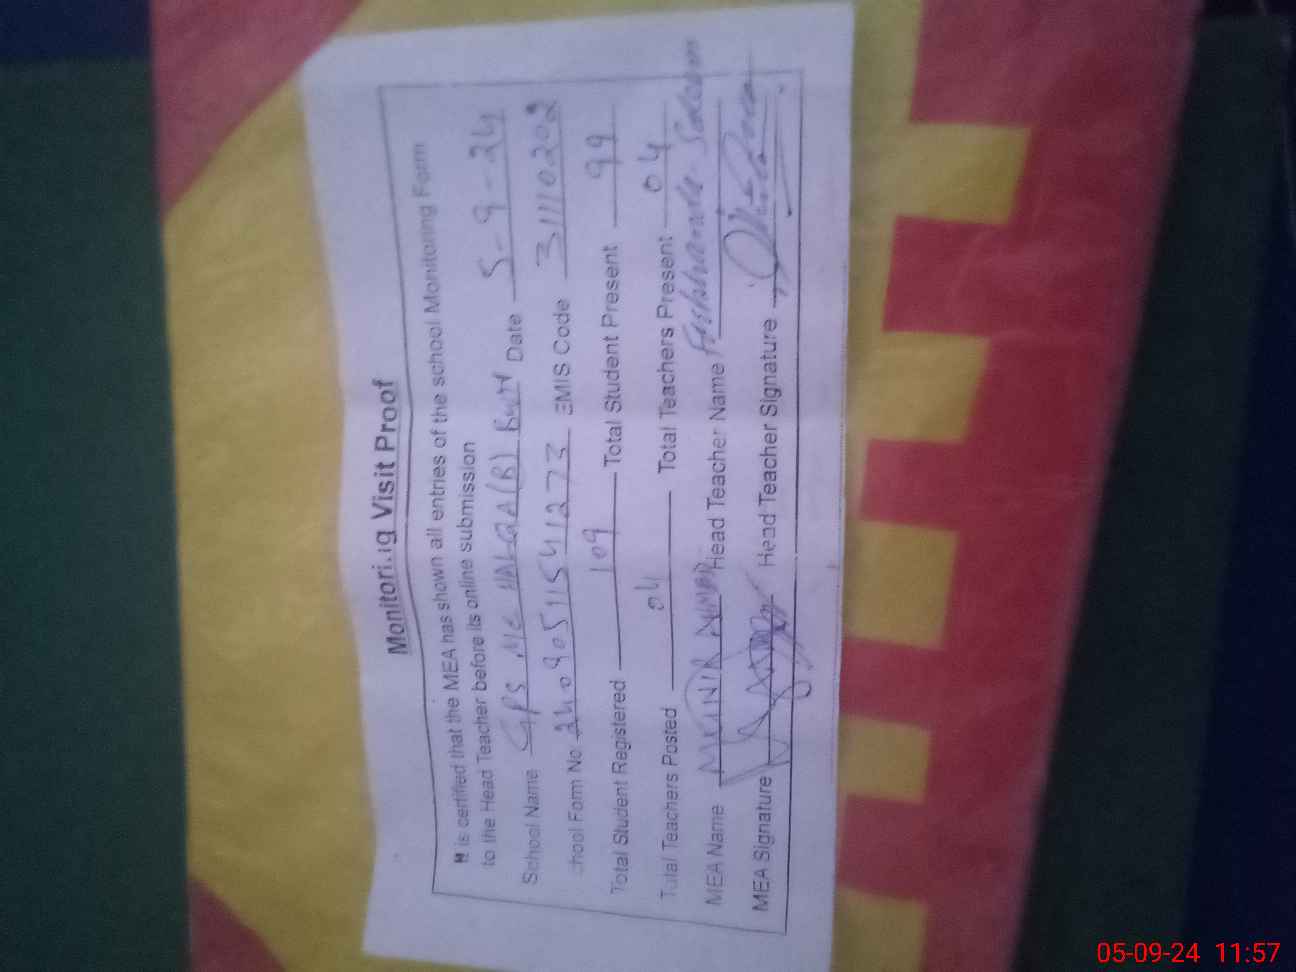 Monitoring Visit Proof
It is certified that the MEA has shown all entries of the school Monitoring Form
to the Head Teacher before its online submission
School Name GPS MC HALQA (B) BWN Date 5-9-24
chool Form No 24090511541273 EMIS Code 31110202
Total Student Registered 109 Total Student Present 99
Total Teachers Posted 04 Total Teachers Present 04
MEA Name MUNIR AHMED Head Teacher Name
MEA Signature Head Teacher Signature
05-09-24 11:57